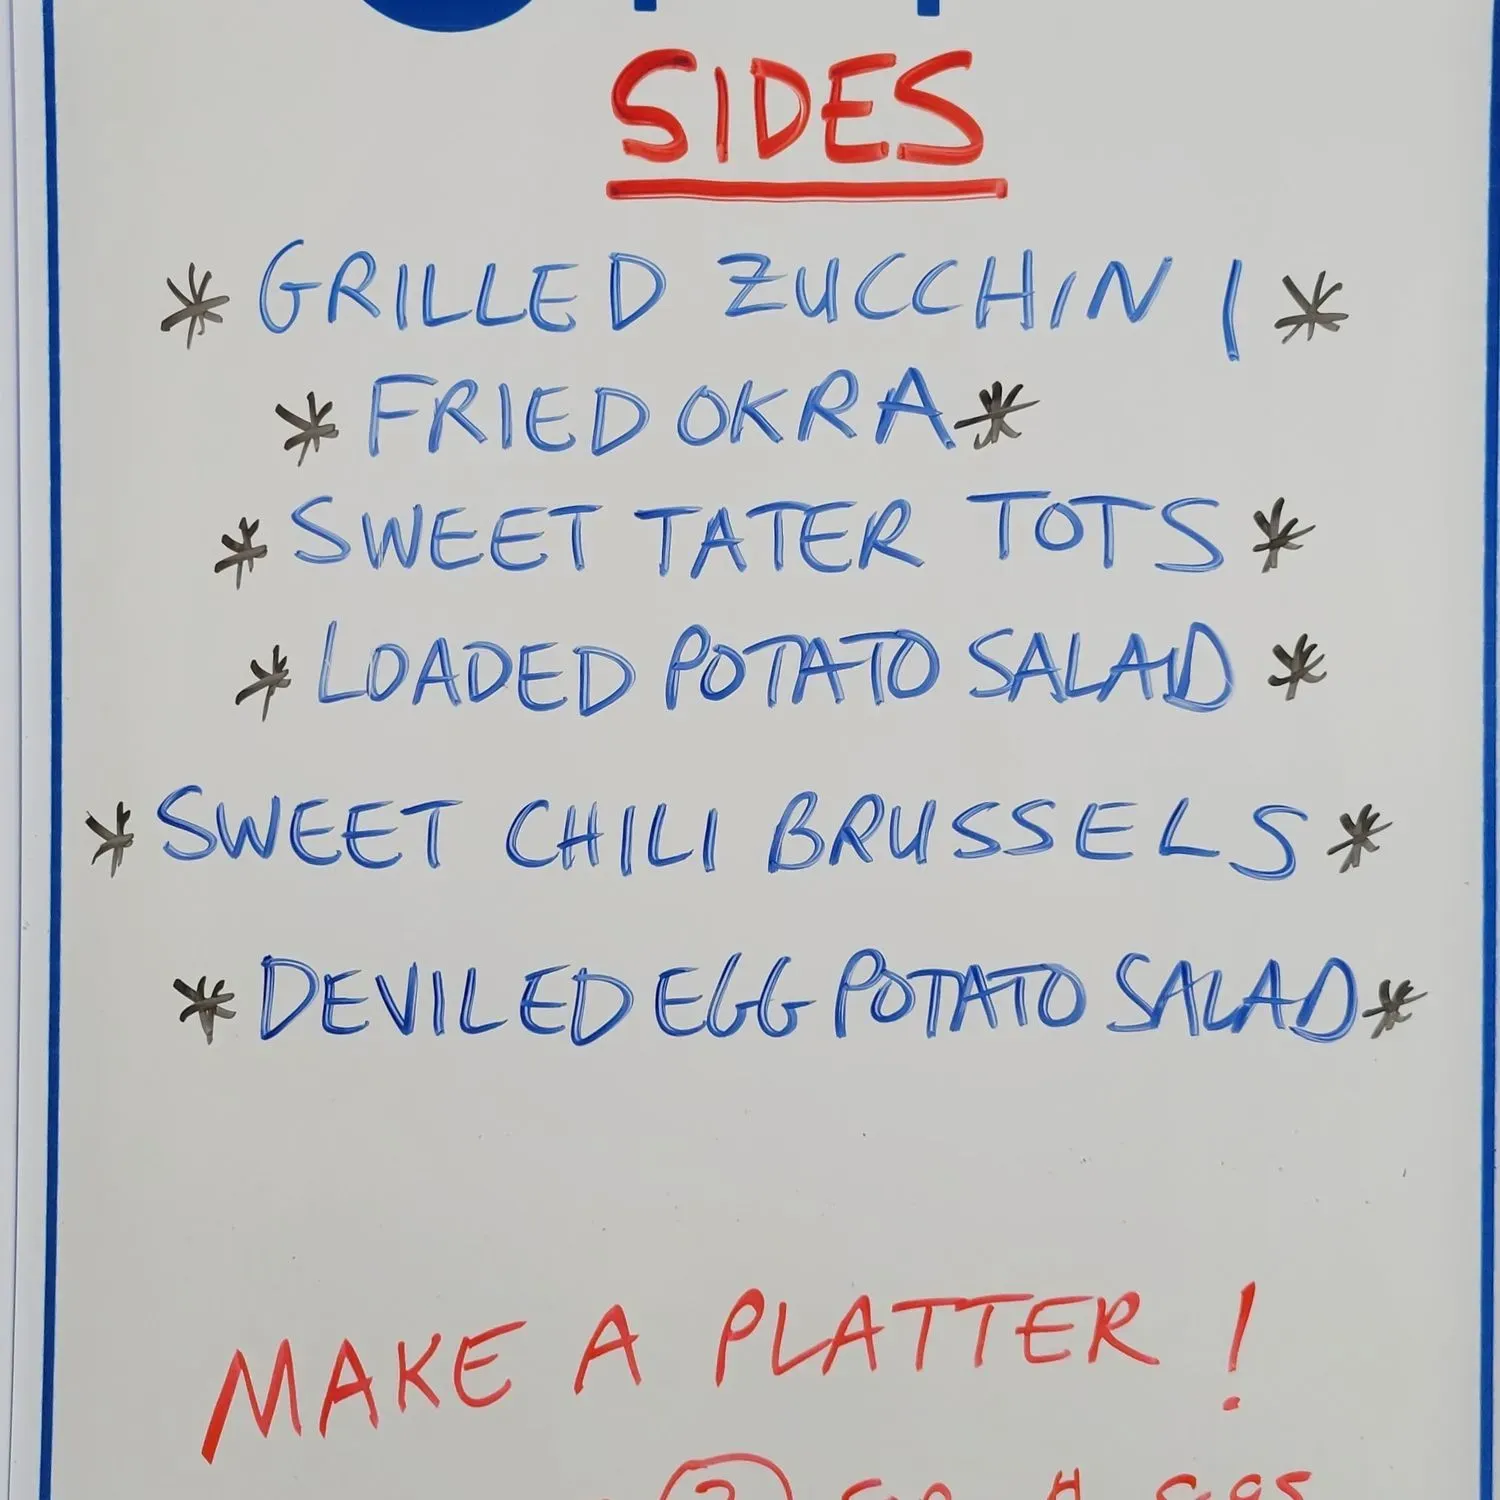 SIDES
* GRILLED ZUCCHINI *
* FRIED OKRA *
* SWEET TATER TOTS *
* LOADED POTATO SALAD *
* SWEET CHILI BRUSSELS *
* DEVILED EGG POTATO SALAD *
MAKE A PLATTER!